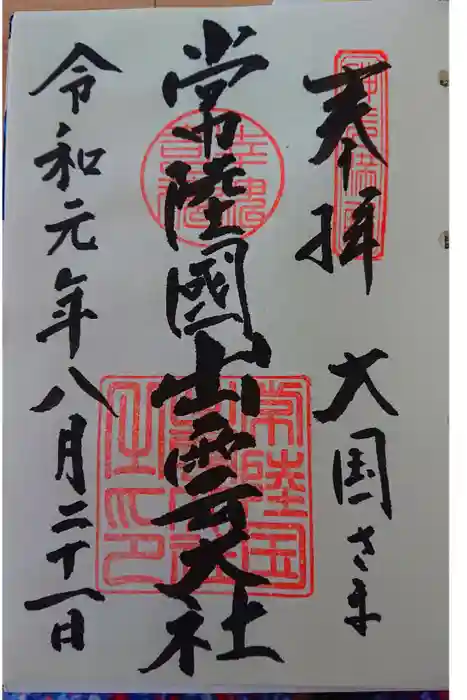 奉拝 大国さま
常陸國出雲大社
令和元年八月二十一日
常陸国